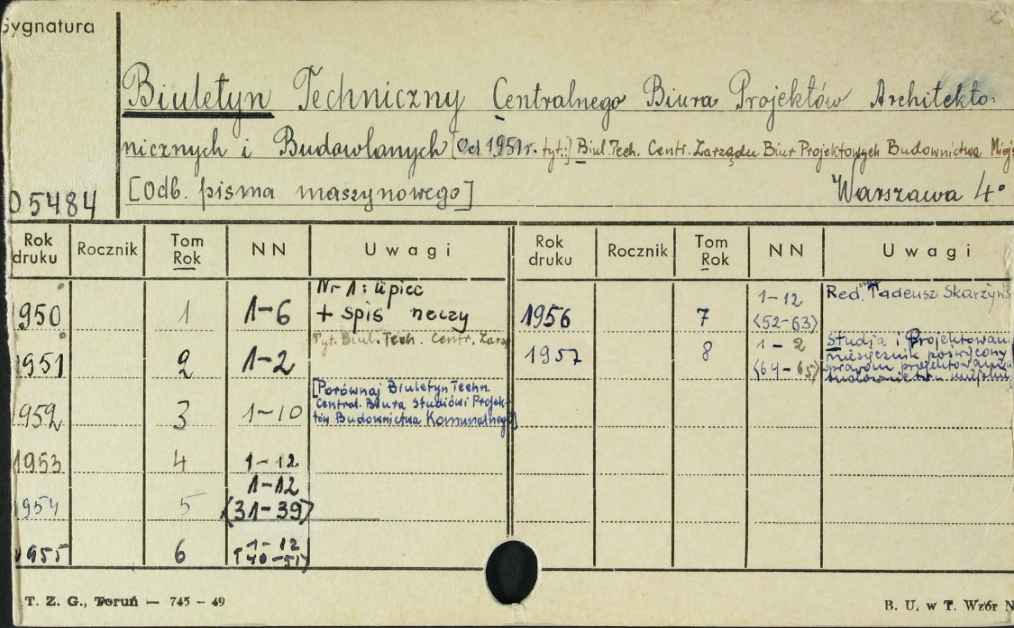 Sygnatura
Biuletyn Techniczny Centralnego Biura Projektów Architekto-
nicznych i Budowlanych [Od 1951 r. tyt:] Biul. Tech. Centr. Zarządu Biur Projektowych Budownictwa Miejs
05484 [Odb. pisma maszynowego] Warszawa 4°
Rok druku Rocznik Tom Rok NN Uwagi Rok druku Rocznik Tom Rok NN Uwagi
1950 1 1-6 Nr 1: lipiec + spis rzeczy
1951 2 1-2 Tyt. Biul. Tech. Centr. Zarz
1952 3 1-10 [Porównaj Biuletyn Techn. Central. Biura Studiów i Projektów Budownictwa Komunalnego]
1953 4 1-12
1954 5 1-12 (31-39)
1955 6 1-12 (40-51)
1956 7 1-12 (52-63) Red. Tadeusz Skarżyńs
1957 8 1-2 (64-65) Studja i Projektowani miesięcznik poświęcony
T. Z. G., Toruń — 745 - 49
B. U. w T. Wzór N